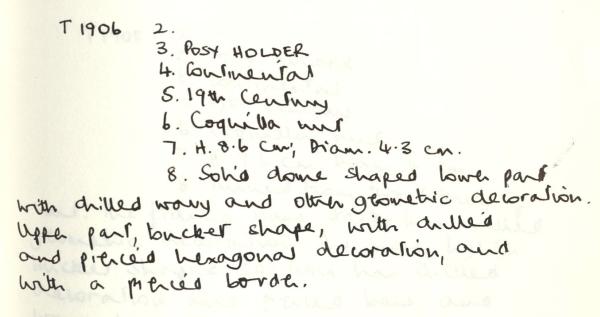 T 1906 2.
3. POSY HOLDER
4. Continental
5. 19th Century
6. Coquilla nut
7. H. 8.6 cm, Diam. 4.3 cm.
8. Solid dome shaped lower part
with drilled wavy and other geometric decoration.
Upper part, bucket shape, with drilled
and pierced hexagonal decoration, and
with a pierced border.